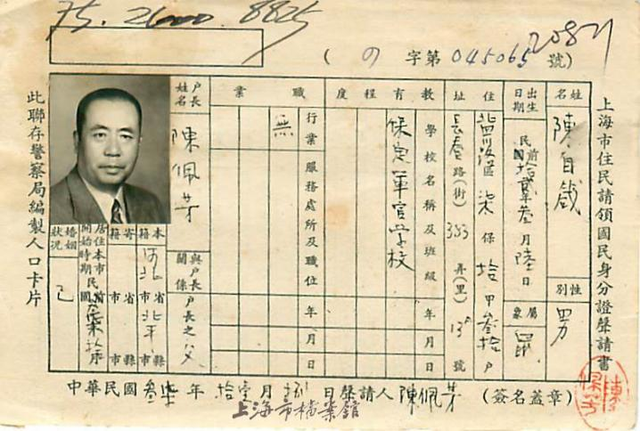 上海市住民請領國民身分證聲請書
(の字第045065號)
姓名 陳自哉
性別 男
出生日期 民前拾貳年叁月陸日
屬象 鼠
住址 區 柒保 拾甲 叁拾戶
長春路(街) 353弄(里) 13號
教育程度
學校名稱及班級 年月
保定軍官學校
職業
行業 服務處所及職位 年月日
無
戶長姓名 陳佩芳
與戶長關係 戶長之父
本籍 河北省市 北平縣市
寄籍 省市 縣市
居住本市開始時期 民國
婚姻狀況 已
此聯存警察局編製人口卡片
中華民國叁柒年拾壹月 日聲請人陳佩芳(簽名蓋章)
上海市檔案館